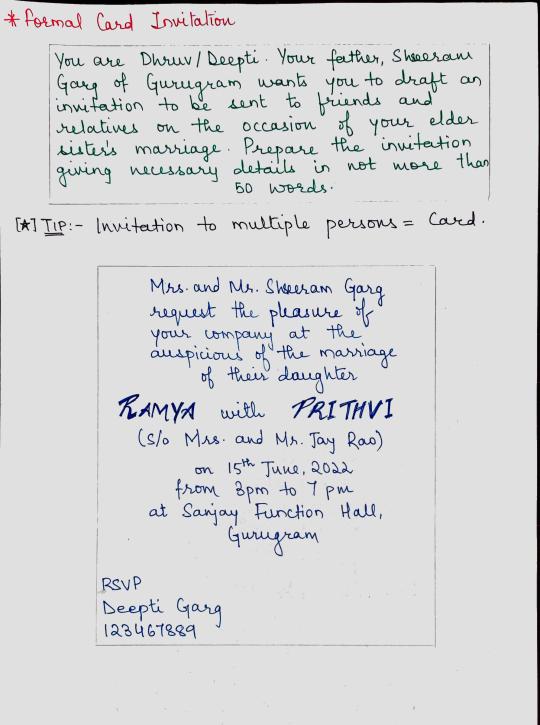 * Formal Card Invitation
You are Dhruv/Deepti. Your father, Sheeram
Garg of Gurugram wants you to draft an
invitation to be sent to friends and
relatives on the occasion of your elder
sister's marriage. Prepare the invitation
giving necessary details in not more than
50 words.
[*] TIP:- Invitation to multiple persons = Card.
Mrs. and Mr. Sheeram Garg
request the pleasure of
your company at the
auspicious of the marriage
of their daughter
RAMYA with PRITHVI
(S/o Mrs. and Mr. Jay Rao)
on 15th June, 2022
from 3pm to 7 pm
at Sanjay Function Hall,
Gurugram
RSVP
Deepti Garg
123467889